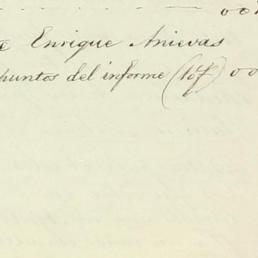 Enrique Anievas
puntos del informe (107) 00